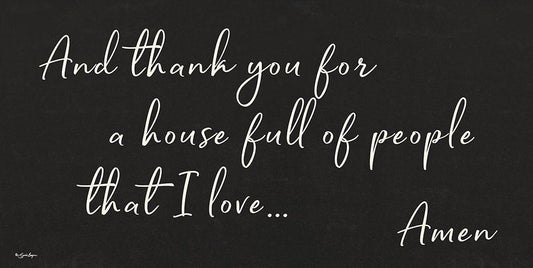 And thank you for
a house full of people
that I love...
Amen